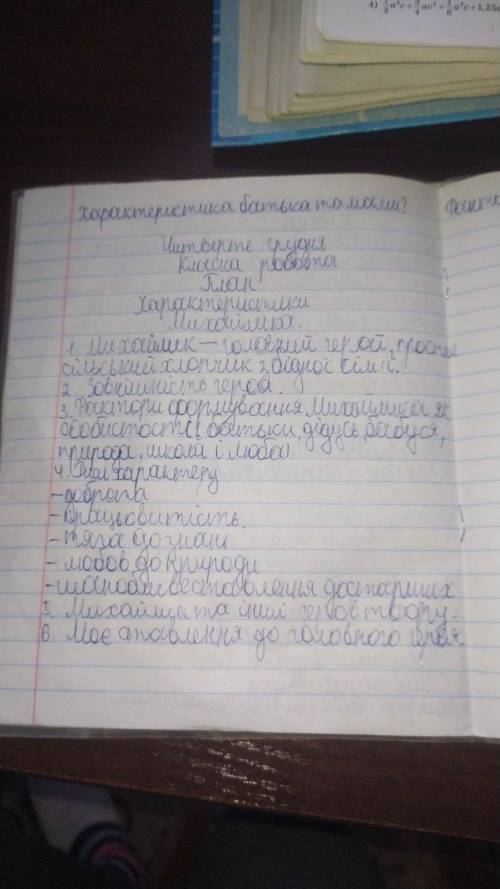 4) 1/3 a²c + 3/4 ac² + 1/6 a²c + 1,25
Характеристика батька та мами?
Четверте грудня
Класна робота
План
Характеристики
Михайлика.
1. Михайлик – головний герой, простий
сільський хлопчик з бідної сім'ї.
2. Зовнішність героя.
3. Фактори формування Михайлика як
особистості (батьки, дідусь, бабуся,
природа, школа і мова)
4. Риси характеру
- доброта
- працьовитість.
- тяга до знань
- любов до природи
- шанобливе ставлення до старших
5. Михайлик та інші герої твору.
6. Моє ставлення до головного героя